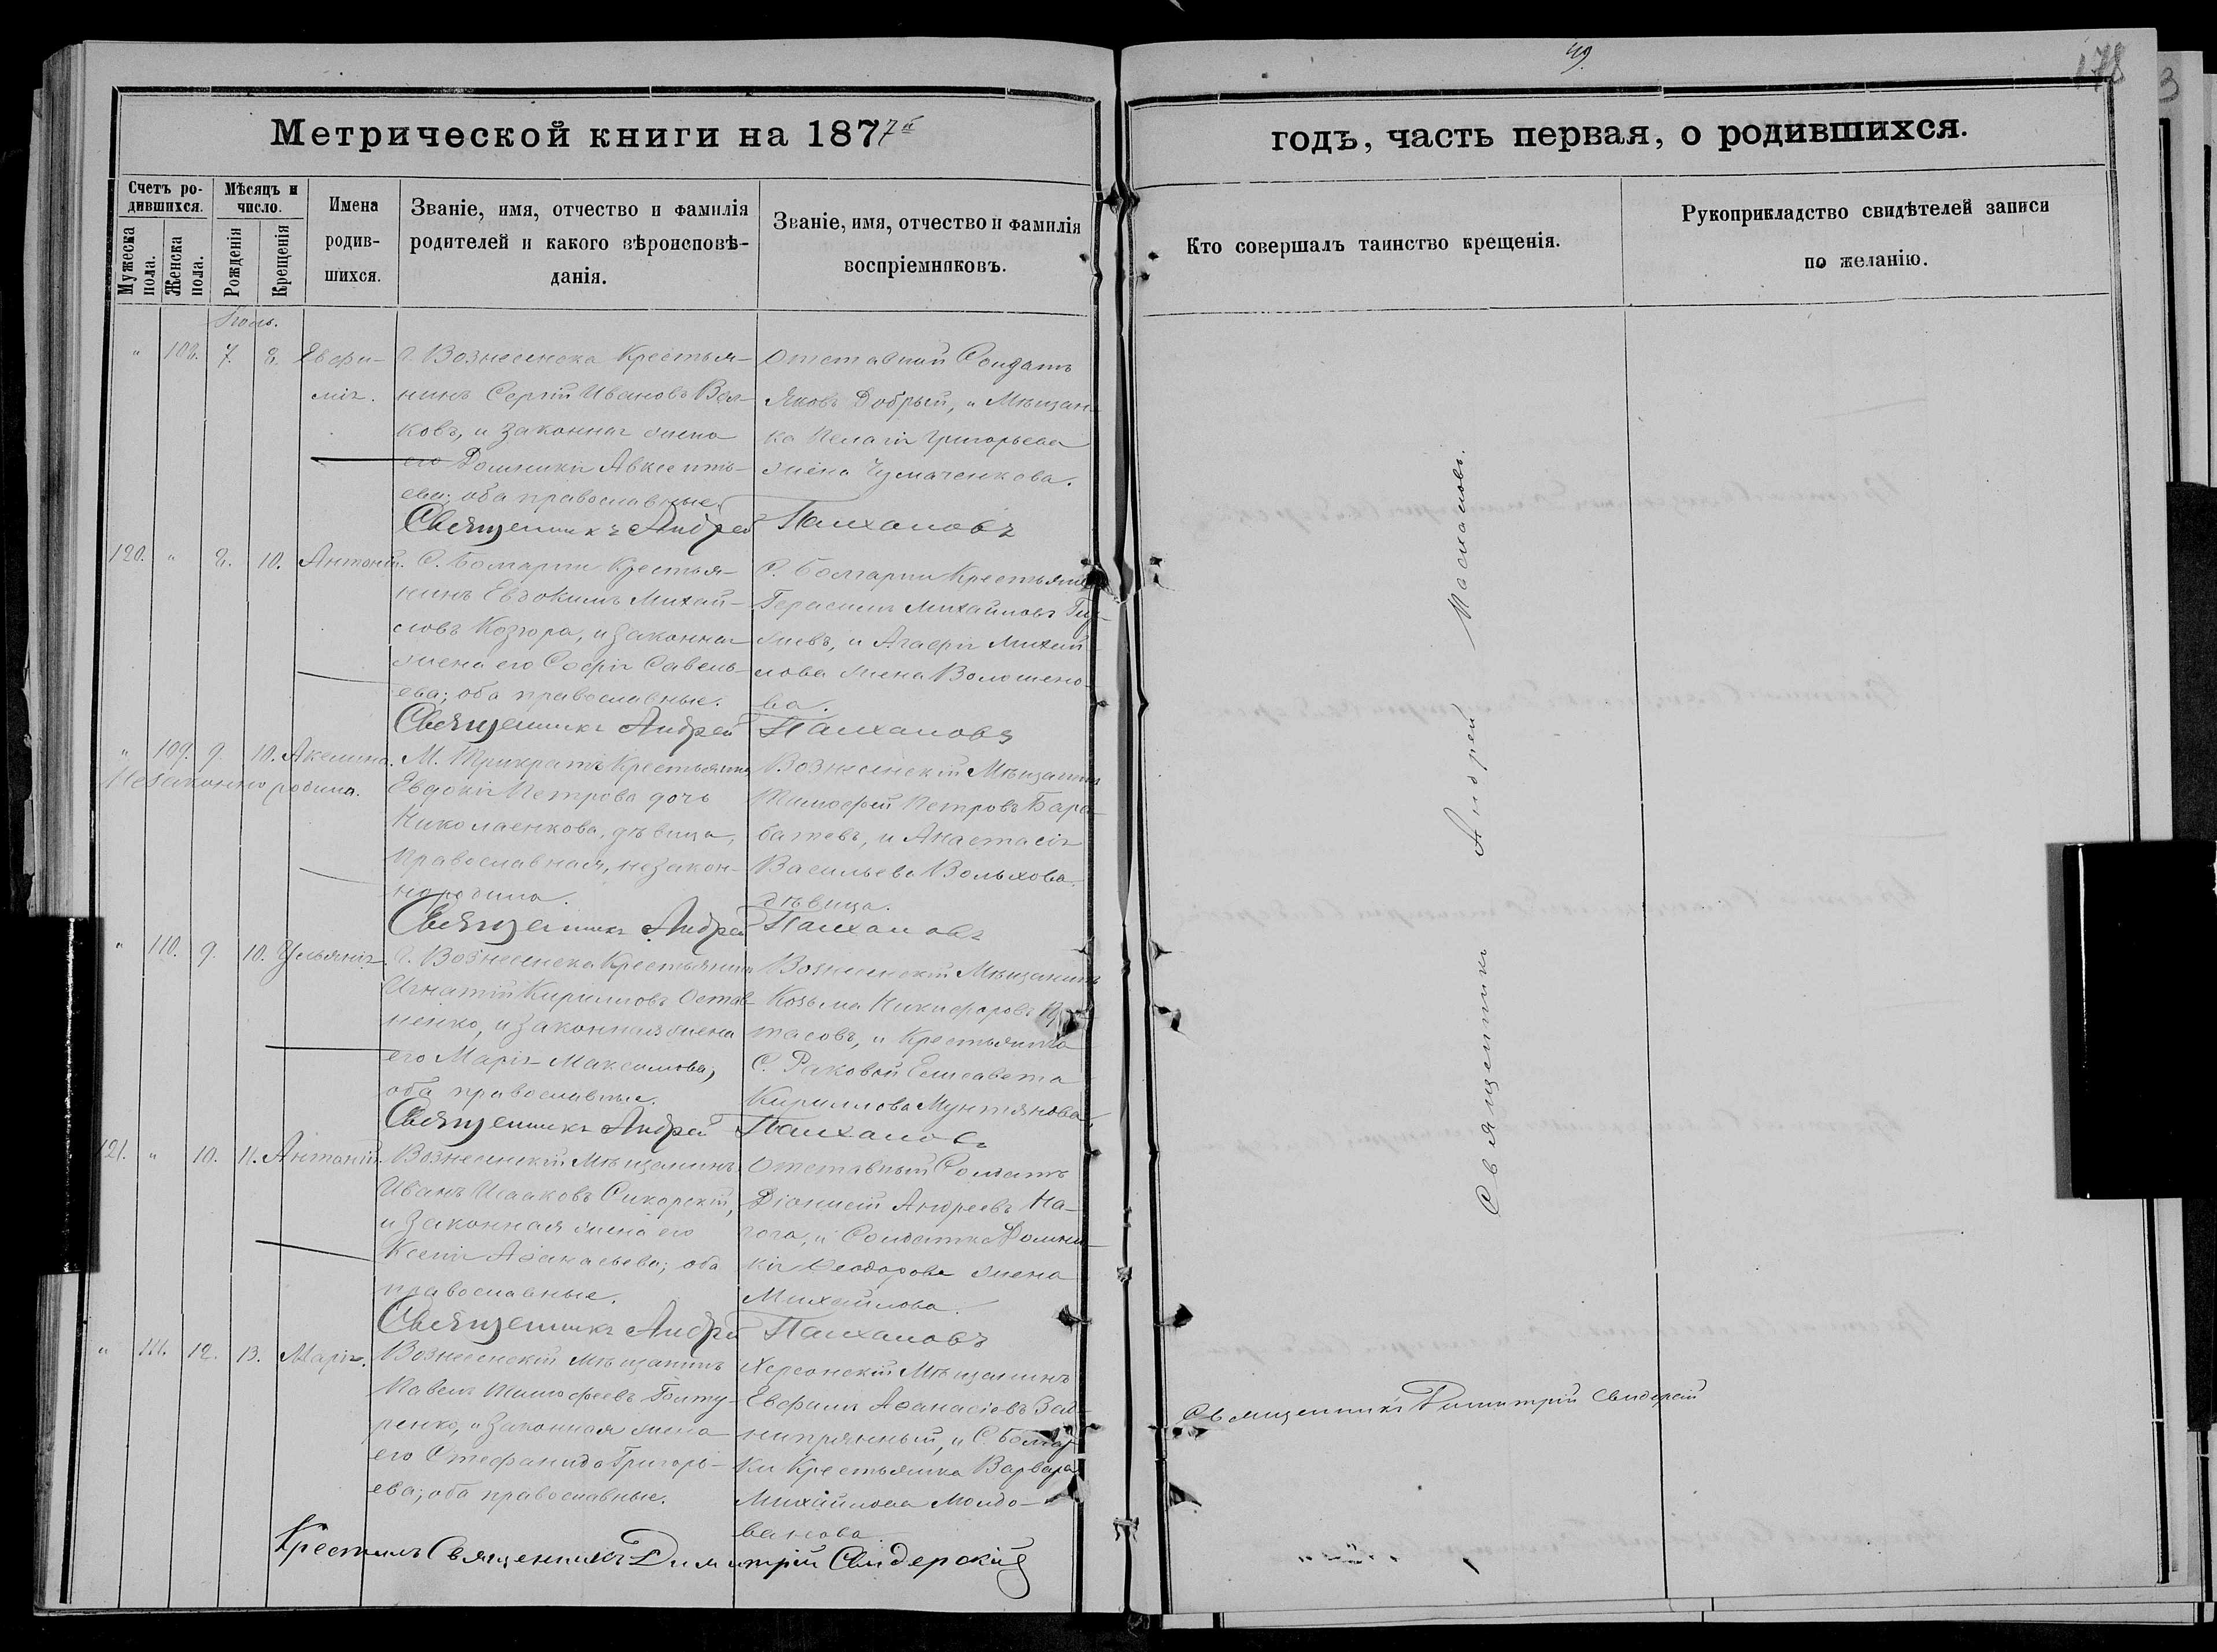 49.
178
3
Метрической книги на 1877й
годъ, часть первая, о родившихся.
Счетъ родившихся.
Мужеска пола.
Женска пола.
Мѣсяцъ и число.
Рожденія
Крещенія
Имена родившихся.
Званіе, имя, отчество и фамилія
родителей и какого вѣроисповѣ-
данія.
Званіе, имя, отчество и фамилія
воспріемниковъ.
Кто совершалъ таинство крещенія.
Рукоприкладство свидѣтелей записи
по желанію.
Іюль.
" 108. 7. 8. Евфи-
мія.
Г. Вознесенска Крестья-
нинъ Сергій Ивановъ
ковъ, и законная жена
его Домникія Авксенть-
ева; оба православные.
Отставной Солдатъ
Яковъ Добрый, и Мѣщан-
ка Пелагія Григорьева
жена Чумаченкова.
Священникъ Андрей
120. " 8. 10. Антоній.
С. Болгарки Крестья-
нинъ Евдокимъ Михай-
ловъ Козюра, и законная
жена его Софія Савель-
ева; оба православные.
С. Болгарки Крестьянинъ
Герасимъ Михайловъ
и Агафія Михай
лова жена Волошено-
ва.
Священникъ Андрей
" 109. 9. 10. Акелина.
Незаконно родила.
М. Трикратъ Крестьянка
Евдокія Петрова дочь
Николаенкова, дѣвица,
православная, незакон-
но родила.
Вознесенскій Мѣщанинъ
Тимофей Петровъ Бара-
батевъ, и Анастасія
Васильева Вольхова
дѣвица.
Священникъ Андрей
" 110. 9. 10. Ульянія.
Г. Вознесенска Крестьянинъ
Игнатій Кирилловъ Остап
ненко, и законная жена
его Марія Максимова;
оба православные.
Вознесенскій Мѣщанинъ
Козьма Никифоровъ
тасовъ, и Крестьянка
С. Раковой Елисавета
Кириллова Мунтянова.
Священникъ Андрей
121. " 10. 11. Антоній.
Вознесенскій Мѣщанинъ
Иванъ Исааковъ Сикорскій,
и законная жена его
Ксенія Аѳанасьева; оба
православные.
Отставный Солдатъ
Діонисій Андреевъ На-
гога, и Солдатка Домни-
кія Ѳеодорова жена
Михайлова.
Священникъ Андрей
" 111. 12. 13. Марія.
Вознесенскій Мѣщанинъ
Павелъ Тимофеевъ Гонту-
ренко, и законная жена
его Стефанида Григорь-
ева; оба православные.
Херсонскій Мѣщанинъ
Евфимъ Аѳанасіевъ
и С. Болгар
ки Крестьянка Варвара
Михайлова Молдо-
ванова.
Крестилъ Священникъ Димитрій Свидерскій
Священникъ Андрей
Священникъ Димитрій Свидерскій